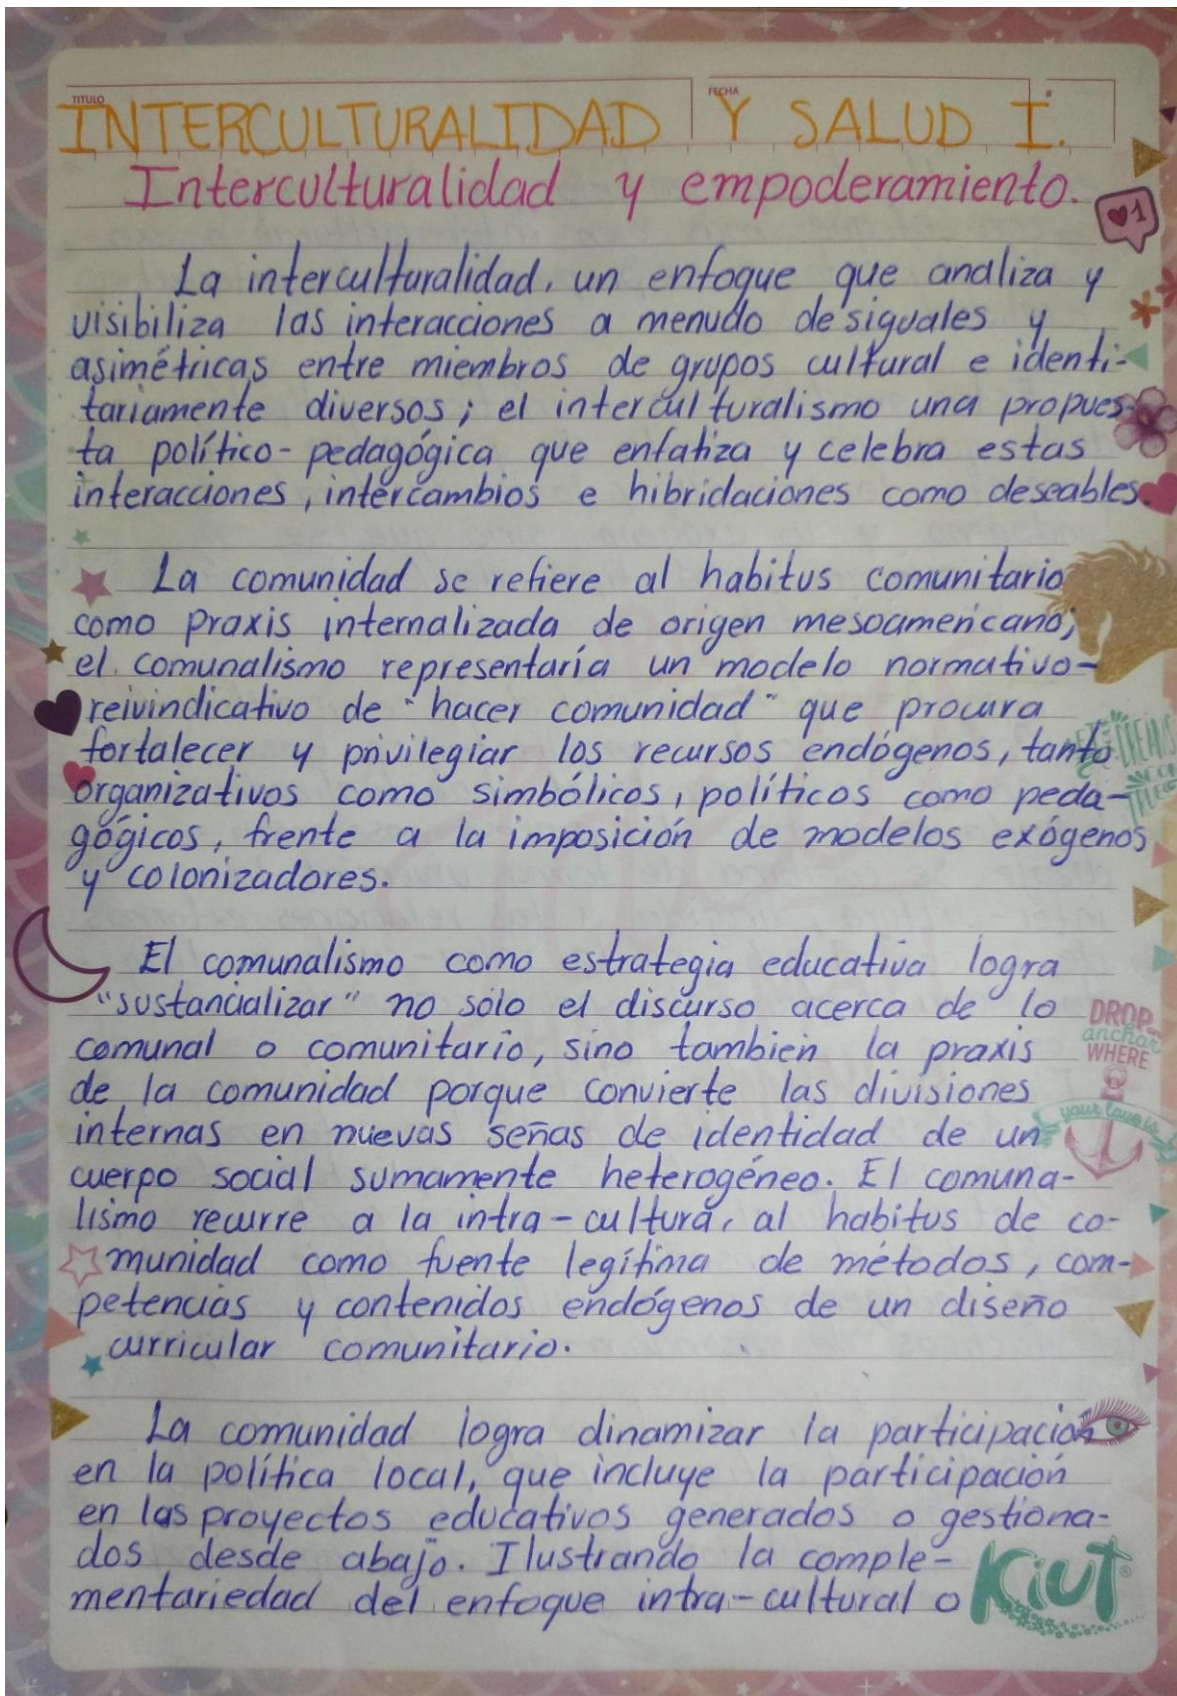 TITULO
FECHA
INTERCULTURALIDAD Y SALUD I.
Interculturalidad y empoderamiento.
1
La interculturalidad, un enfoque que analiza y
visibiliza las interacciones a menudo desiguales y
asimétricas entre miembros de grupos cultural e identi-
tariamente diversos; el interculturalismo una propues-
ta político-pedagógica que enfatiza y celebra estas
interacciones, intercambios e hibridaciones como deseables.
La comunidad se refiere al habitus comunitario
como praxis internalizada de origen mesoamericano;
el comunalismo representaría un modelo normativo-
reivindicativo de "hacer comunidad" que procura
fortalecer y privilegiar los recursos endógenos, tanto
organizativos como simbólicos, políticos como peda-
gógicos, frente a la imposición de modelos exógenos
y colonizadores.
El comunalismo como estrategia educativa logra
"sustancializar" no sólo el discurso acerca de lo
comunal o comunitario, sino también la praxis
de la comunidad porque convierte las divisiones
internas en nuevas señas de identidad de un
cuerpo social sumamente heterogéneo. El comuna-
lismo recurre a la intra-cultura, al habitus de co-
munidad como fuente legítima de métodos, com-
petencias y contenidos endógenos de un diseño
curricular comunitario.
DROP
anchor
WHERE
your love is
La comunidad logra dinamizar la participación
en la política local, que incluye la participación
en las proyectos educativos generados o gestiona-
dos desde abajo. Ilustrando la comple-
mentariedad del enfoque intra-cultural o
Kiut